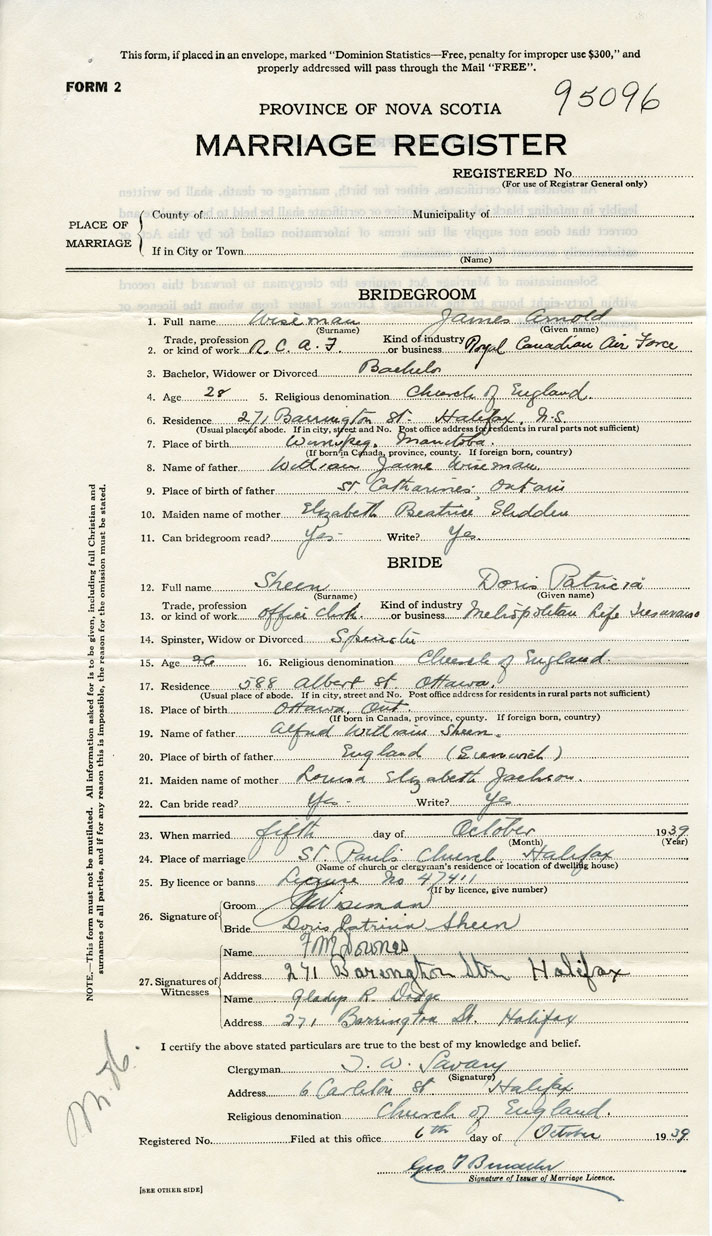 This form, if placed in an envelope, marked "Dominion Statistics—Free, penalty for improper use $300," and
properly addressed will pass through the Mail "FREE".
FORM 2
95096
PROVINCE OF NOVA SCOTIA
MARRIAGE REGISTER
REGISTERED No.
(For use of Registrar General only)
PLACE OF MARRIAGE
County of Municipality of
If in City or Town
(Name)
BRIDEGROOM
1. Full name Wiseman James Arnold
(Surname) (Given name)
2. Trade, profession or kind of work R.C.A.F. Kind of industry or business Royal Canadian Air Force
3. Bachelor, Widower or Divorced Bachelor
4. Age 28 5. Religious denomination Church of England.
6. Residence 271 Barrington St. Halifax, N.S.
(Usual place of abode. If in city, street and No. Post office address for residents in rural parts not sufficient)
7. Place of birth Winnipeg, Manitoba.
(If born in Canada, province, county. If foreign born, country)
8. Name of father William Wiseman
9. Place of birth of father St. Catharines, Ontario
10. Maiden name of mother Elizabeth Beatrice
11. Can bridegroom read? Yes. Write? Yes.
BRIDE
12. Full name Sheen Doris Patricia
(Surname) (Given name)
13. Trade, profession or kind of work Office Clerk Kind of industry or business Metropolitan Life Insurance
14. Spinster, Widow or Divorced Spinster
15. Age 26 16. Religious denomination Church of England.
17. Residence 588 Albert St. Ottawa.
(Usual place of abode. If in city, street and No. Post office address for residents in rural parts not sufficient)
18. Place of birth Ottawa, Ont.
(If born in Canada, province, county. If foreign born, country)
19. Name of father Alfred William Sheen.
20. Place of birth of father England (Greenwich)
21. Maiden name of mother Louisa Elizabeth Jackson.
22. Can bride read? Yes. Write? Yes
23. When married fifth day of October 1939
(Month) (Year)
24. Place of marriage St. Paul's Church Halifax
(Name of church or clergyman's residence or location of dwelling house)
25. By licence or banns License No 47411
(If by licence, give number)
26. Signature of
Groom Wiseman
Bride Doris Patricia Sheen
27. Signatures of Witnesses
Name F M Downes
Address 271 Barrington Str. Halifax
Name Gladys R. Dodge
Address 271 Barrington St. Halifax
I certify the above stated particulars are true to the best of my knowledge and belief.
Clergyman T. W. Savary
(Signature)
Address 6 Carleton St Halifax
Religious denomination Church of England.
Registered No. Filed at this office 6th day of October 1939
Geo
Signature of Issuer of Marriage Licence.
[SEE OTHER SIDE]
NOTE.—This form must not be mutilated. All information asked for is to be given, including full Christian and
surnames of all parties, and if for any reason this is impossible, the reason for the omission must be stated.